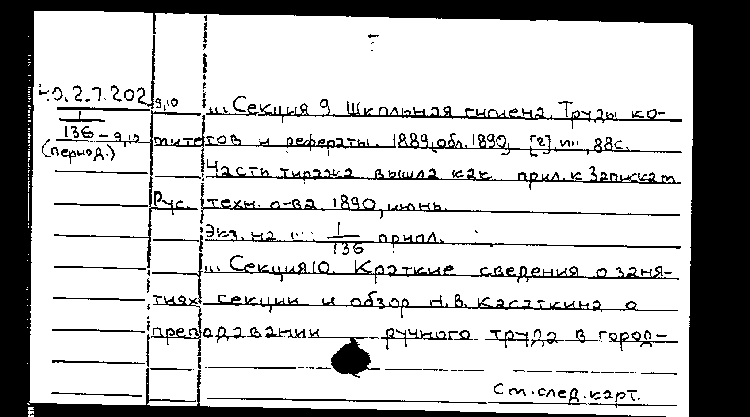 Ю.2.7.202 9,10 ... Секция 9. Школьная гигиена. Труды ко-
1
136 – 9,10 митетов и рефераты. 1889, обл. 1890, [2], III, 88с.
(период.)
Часть тиража вышла как прил. к Запискам
Рус. техн. о-ва. 1890, июнь.
Экз. на ... 1
136 припл.
... Секция 10. Краткие сведения о заня-
тиях секции и обзор Н.В. Касаткина о
преподавании ручного труда в город-
См. след. карт.